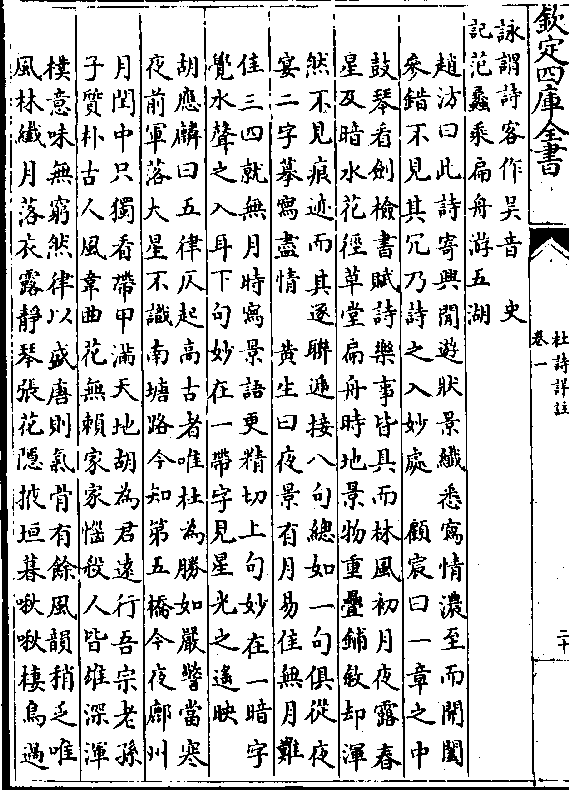 欽定四庫全書
杜詩詳註
卷一
二十
詠謂詩客作吳音 史
記范蠡乘扁舟游五湖
趙汸曰此詩寄興閒遊狀景纖悉寫情濃至而開闔
參錯不見其冗乃詩之入妙處 顧宸曰一章之中
鼓琴看劍檢書賦詩樂事皆具而林風初月夜露春
星及暗水花徑草堂扁舟時地景物重疊鋪敘却渾
然不見痕迹而其逐聯遞接八句總如一句俱從夜
宴二字摹寫盡情 黃生曰夜景有月易佳無月難
佳三四就無月時寫景語更精切上句妙在一暗字
覺水聲之入耳下句妙在一帶字見星光之遙映
胡應麟曰五律仄起高古者唯杜為勝如嚴警當寒
夜前軍落大星不識南塘路今知第五橋今夜鄜州
月閨中只獨看帶甲滿天地胡為君遠行吾宗老孫
子質朴古人風韋曲花無賴家家惱殺人皆雄深渾
樸意味無窮然律以盛唐則氣骨有餘風韻稍乏唯
風林纖月落衣露靜琴張花隱掖垣暮啾啾棲鳥過